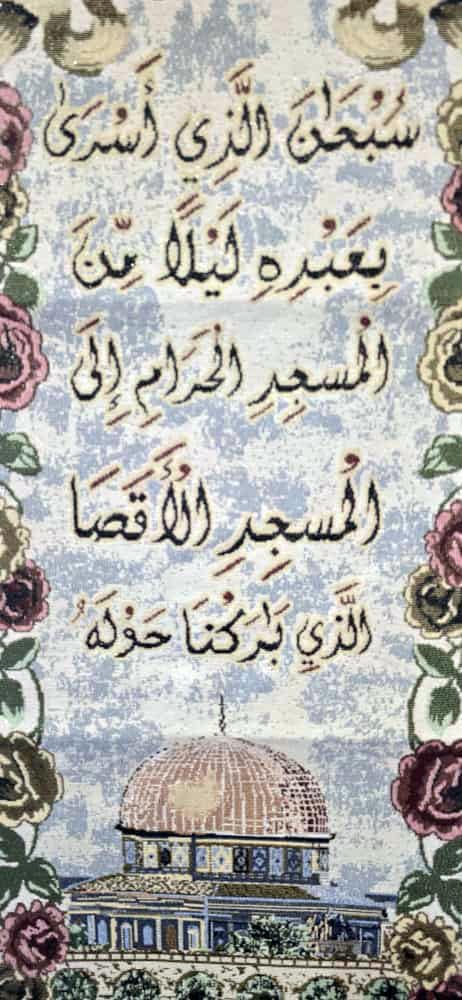 سُبْحَٰنَ الَّذِي أَسْرَىٰ
بِعَبْدِهِ لَيْلًا مِّنَ
الْمَسْجِدِ الْحَرَامِ إِلَى
الْمَسْجِدِ الْأَقْصَا
الَّذِي بَارَكْنَا حَوْلَهُ